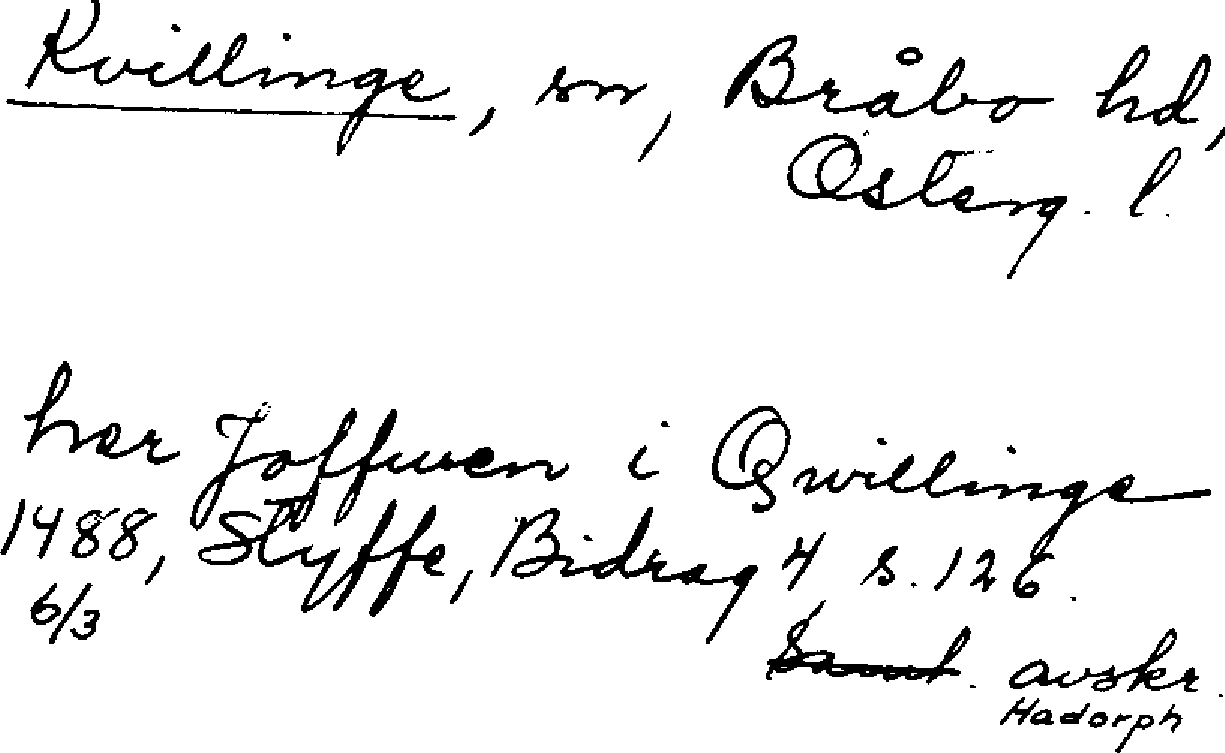 Kvillinge, sn, Bråbo hd,
Österg. l.
her Joffuen i Qwillinge
1488, Styffe, Bidrag 4, s. 126.
6/3
Samt. avskr.
Hadorph